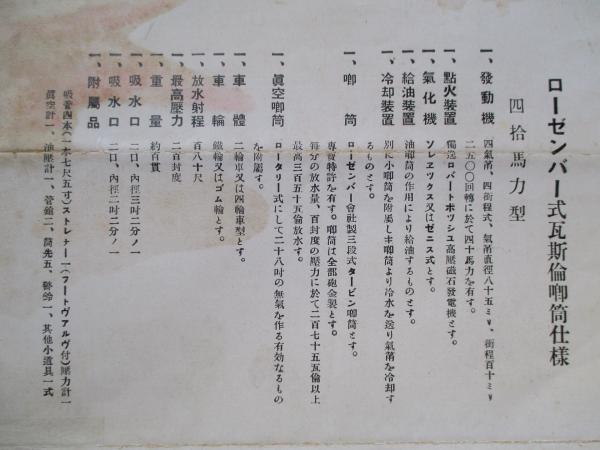 ローゼンバー式瓦斯倫喞筒仕様
四拾馬力型
一、發動機 四氣筩、四衝程式、氣筩直徑八十五ミリ、衝程百十ミリ
二五〇〇回轉に於て四十馬力を有す。
一、點火裝置 獨逸ロバートボツシユ高壓磁石發電機とす。
一、氣化機 ソレヱツクス又はゼニス式とす。
一、給油裝置 油喞筒の作用により給油するものとす。
一、冷却裝置 別に小喞筒を附屬し主喞筒より冷水を送り氣筩を冷却す
るものとす。
一、喞筒 ローゼンバー會社製三段式タービン喞筒とす。
專賣特許を有す。喞筒は全部砲金製とす。
每分の放水量、百封度の壓力に於て二百七十五瓦倫以上
最高三百五十五瓦倫放水す。
一、眞空喞筒 ロータリー式にして二十八吋の無氣を作る有効なるもの
を附屬す。
一、車體 二輪車又は四輪車型とす。
一、車輪 鐵輪又はゴム輪とす。
一、放水射程 百八十尺
一、最高壓力 二百封度
一、重量 約百貫
一、吸水口 二口、內徑三吋二分ノ一
一、吸水口 二口、內徑二吋二分ノ一
一、附屬品
吸管四本(一本七尺五寸)ストレーナー一(フートヴアルヴ付)壓力計一
眞空計一、油壓計一、管鎗二、筒先五、警鈴一、其他小道具一式